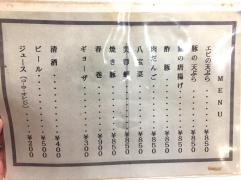 MENU
エビの天ぷら・・・・・¥850
豚の天ぷら・・・・・¥850
の唐揚げ・・・・・¥850
酢豚・・・・・¥850
肉だんご・・・・・¥850
八宝菜・・・・・¥850
¥850
焼き豚・・・・・¥850
春巻・・・・・¥900
ギョーザ・・・・・¥300
清酒・・・・・¥400
ビール・・・・・¥500
ジュース・・・・・¥200